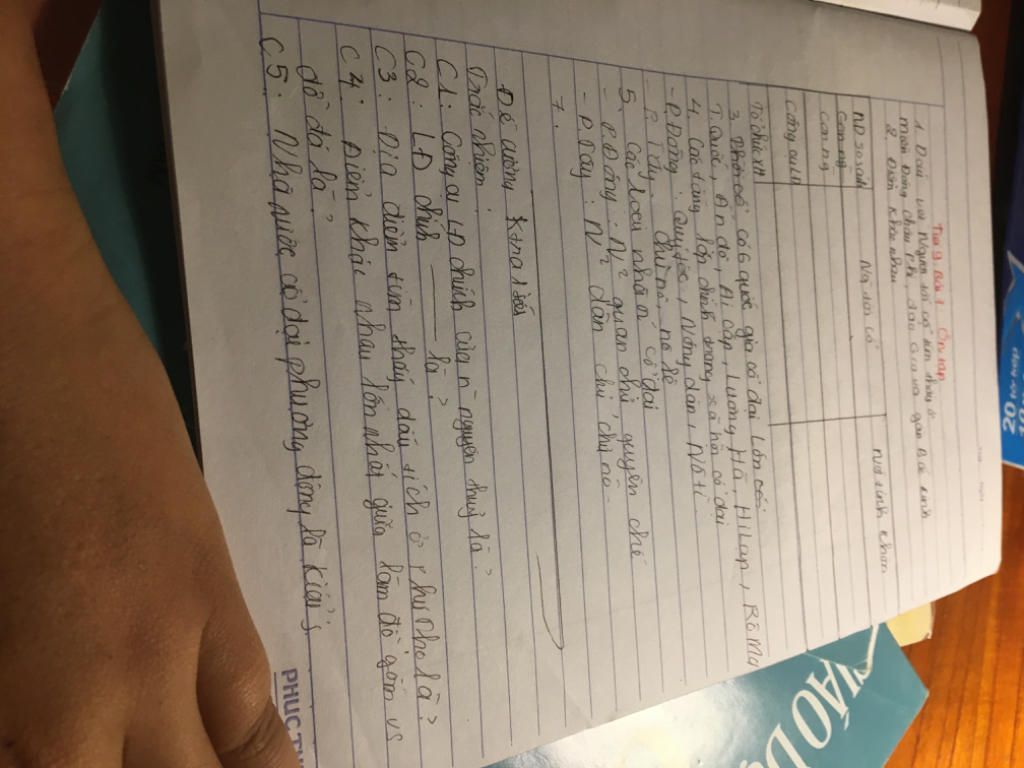 Tiết 9. Bài 7. Ôn tập
1. Dấu vết Người tối cổ tìm thấy ở:
miền Đông châu Phi, đảo Gia va gần Bắc Kinh
2. Điểm khác nhau
ND so sánh
Người tối cổ
Người tinh khôn
Con ng
Công cụ LĐ
Tổ chức XH
3. Nhân có 6 quốc gia cổ đại lớn
T. Quốc, Ấn độ, Ai Cập, Lưỡng Hà, Hi Lạp, Rô Ma
4. Các tầng lớp chính trong xã hội cổ đại
- P. Đông: Quý tộc, Nông dân, Nô lệ
- P. Tây: chủ nô, nô lệ
5. Các loại nhà n² cổ đại
- P. Đông: N² quan chủ chuyên chế
- P. Tây: N² dân chủ chủ nô
7.
Đề cương Ktra 1 tiết
Trắc nghiệm:
C1: Công cụ LĐ chính của n nguyên thuỷ là?
C2: LĐ chính là?
C3: Địa điểm tìm thấy dấu tích ở Phi là?
C4: Điểm khác nhau lớn nhất giữa làm đồ gốm vs
đồ đá là?
C5: Nhà nước cổ đại phương đông là kiểu
PHUC
20
GIÁO DỤ